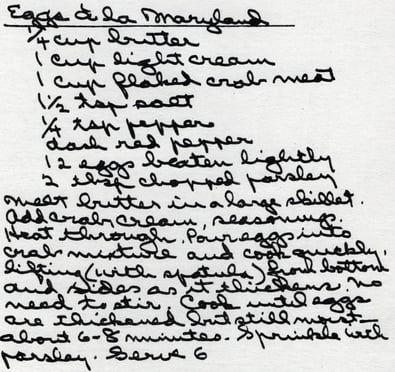 Eggs à la Maryland
1/4 cup butter
1 cup light cream
1 cup flaked crab meat
1 1/2 tsp salt
1/4 tsp pepper
dash red pepper
12 eggs beaten lightly
2 tbsp chopped parsley
melt butter in a large skillet.
Add crab, cream, seasonings.
Heat through. Pour eggs into
crab mixture and cook quickly,
lifting (with spatula) from bottom
and sides as it thickens. No
need to stir. Cook until eggs
are thickened but still moist—
about 6-8 minutes. Sprinkle with
parsley. Serve 6